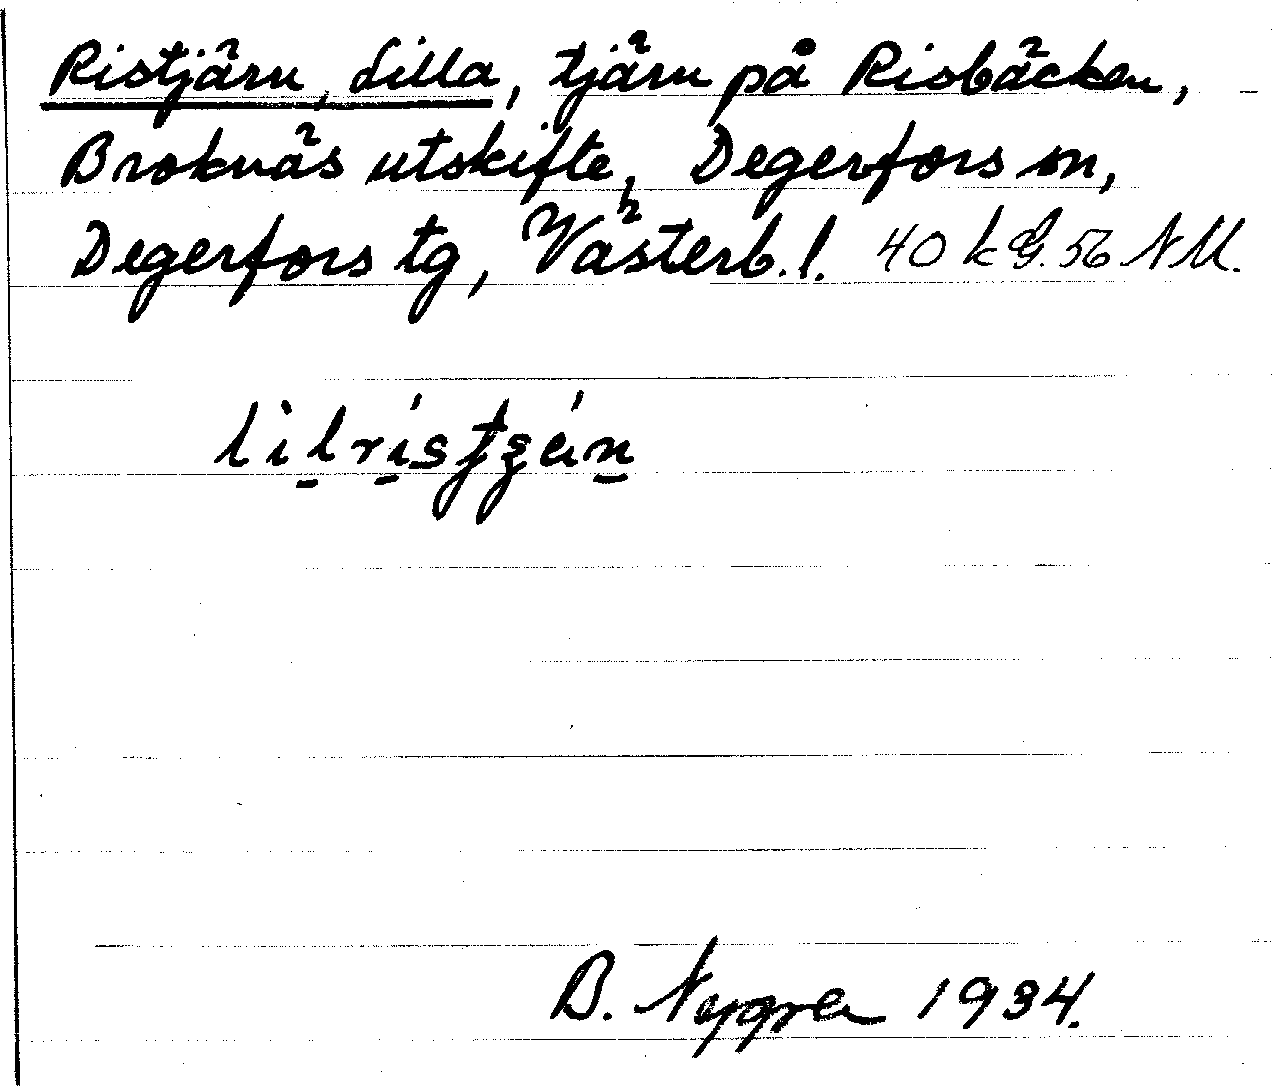 Ristjärn, Lilla, tjärn på Risbäcken,
Broknäs utskifte, Degerfors sn,
Degerfors tg, Västerb. l. 40 k G. 56 NM.
B. Nygren 1934.